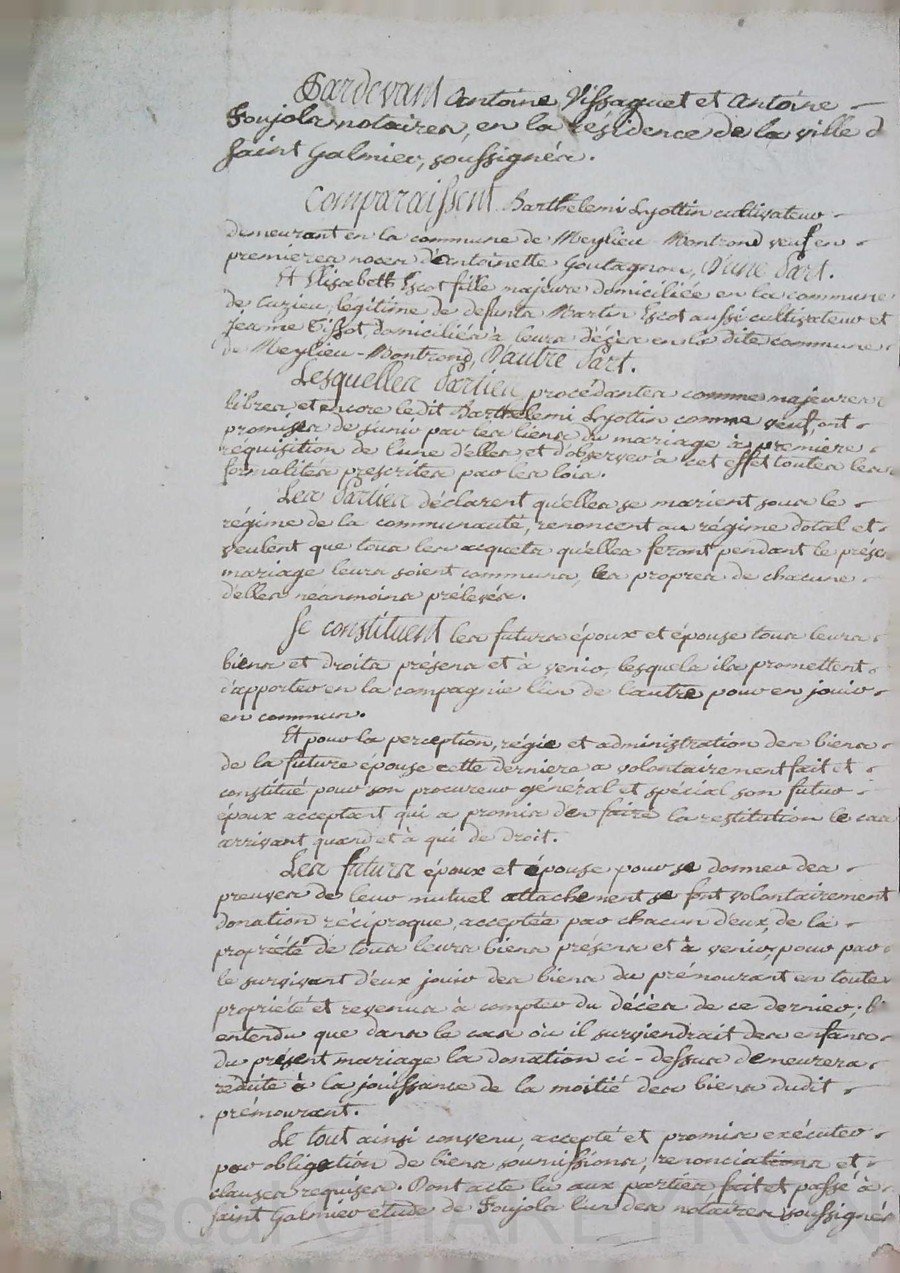 Pardevant Antoine Vissaguet et Antoine
Poujola notaires, en la résidence de la ville d
Saint Galmier, soussignés.
Comparaissent Barthelemi Lyottin cultivateur
demeurant en la commune de Meylieu-Montrond veuf en
premieres noces d'Antoinette Goutagnon, D'une Part.
Et Elisabeth Escot fille majeure domiciliée en la commune
de Cuzieu, légitime de defunts Martin Escot aussi cultivateur et
Jeanne Tissot, domiciliés à leurs décès en la dite commune
de Meylieu-Montrond, D'autre Part.
Lesquelles Parties procédantes comme majeures
libres et encore ledit Barthelemi Lyottin comme veuf, ont
promises de s'unir par les liens du mariage à premiere
réquisition de l'une d'elles, et d'observer à cet effet toutes les
formalités prescrites par les lois.
Les Parties déclarent qu'elles se marient sous le
régime de la communauté, renoncent au régime dotal et
veulent que tous les acquets qu'elles feront pendant le prése
mariage leurs soient communs, les propres de chacune
d'elles néanmoins prélevés.
Se constituent les futurs époux et épouse tous leurs
biens et droits présens et à venir, lesquels ils promettent
d'apporter en la compagnie l'un de l'autre pour en jouir
en commun.
Et pour la perception, régie et administration des biens
de la future épouse cette derniere a volontairement fait et
constitué pour son procureur général et spécial son futur
époux acceptant qui a promis d'en faire la restitution le cas
arrivant quand et à qui de droit.
Les futurs époux et épouse pour se donner des
preuves de leur mutuel attachement se font volontairement
donation réciproque, acceptée par chacun d'eux, de la
propriété de tous leurs biens présens et à venir, pour par
le survivant d'eux jouir des biens du prémourant en toute
propriété et revenus à compter du décès de ce dernier; b
entendu que dans le cas où il surviendrait des enfans
du présent mariage la donation ci-dessus demeurera
réduite à la jouissance de la moitié des biens dudit
prémourant.
Le tout ainsi convenu, accepté et promis exécuter
par obligation de biens soumissions, renonciations et
clauses requises. Dont acte lu aux parties fait et passé à
Saint Galmier etude de Poujola l'un des notaires soussignés